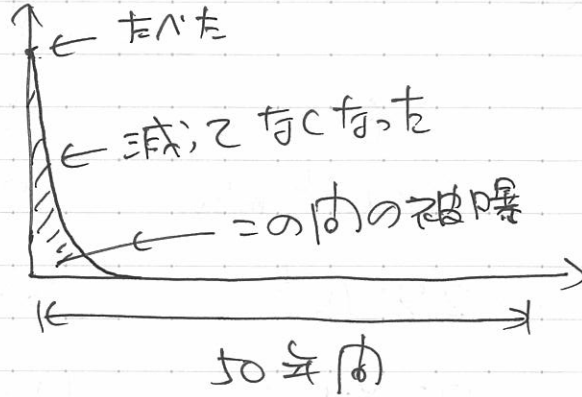 たべた
減ってなくなった
この間の被曝
50年間